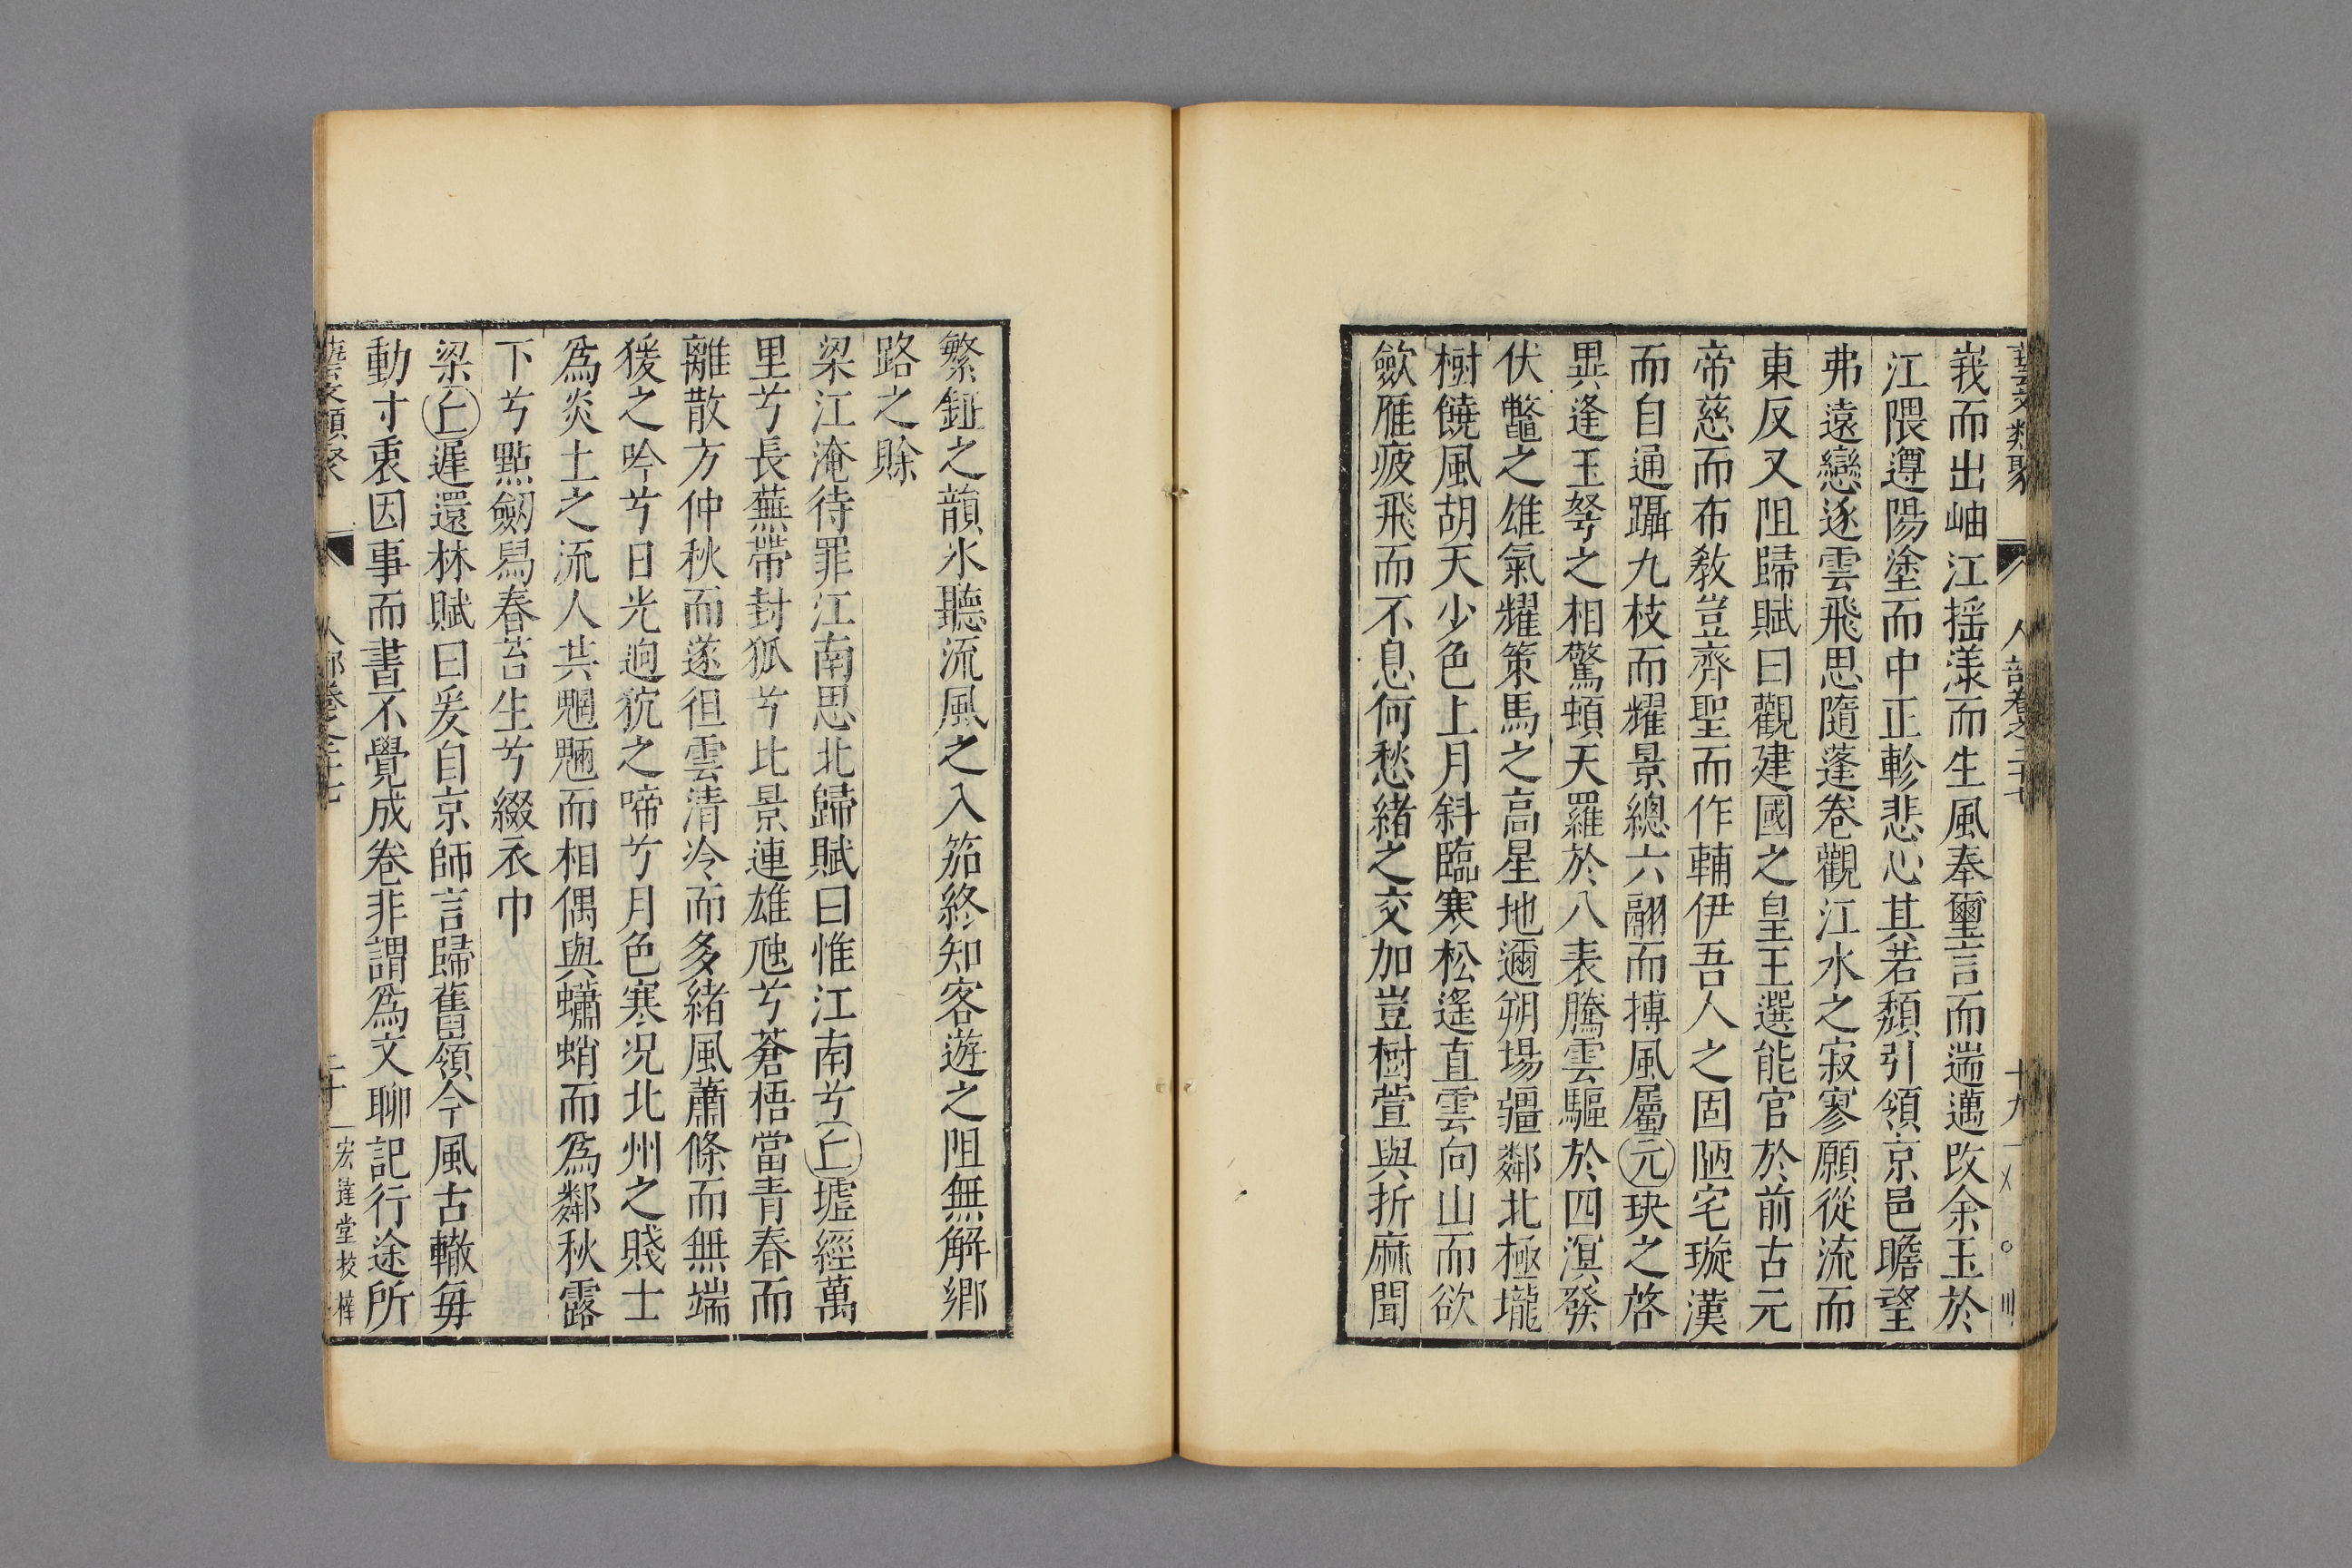 藝文類聚 人部卷之二十七 十九
峩而出岫江摇漾而生風奉璽言而遄邁攺余玉於
江隈遵陽塗而中正軫悲心其若頽引領京邑瞻望
弗遠戀逐雲飛思隨蓬卷觀江水之寂寥願從流而
東反又阻歸賦曰觀建國之皇王選能官於前古元
帝慈而布敎豈齊聖而作輔伊吾人之固陋宅璇漢
而自通躡九枝而耀景總六翮而摶風屬元玦之啓
異逢玉弩之相驚頓天羅於八表騰雲驅於四溟發
伏鼈之雄氣耀策馬之高星地邇朔場疆鄰北極壠
樹饒風胡天少色上月斜臨寒松遙直雲向山而欲
歛雁疲飛而不息何愁緒之交加豈樹萱與折麻聞
繁鉦之韻氷聽流風之入笳終知客遊之阻無解鄉
路之賒
梁江淹待罪江南思北歸賦曰惟江南兮丘墟經萬
里兮長蕪帶封狐兮比景連雄虺兮蒼梧當青春而
離散方仲秋而遂徂雲清冷而多緒風蕭條而無端
猨之吟兮日光逈狖之啼兮月色寒况北州之賤士
爲炎土之流人共魍魎而相偶與蠨蛸而爲鄰秋露
下兮點劒舃春苔生兮綴衣巾
梁丘遲還林賦曰爰自京師言歸舊領今風古轍毎
動寸衷因事而書不覺成卷非謂爲文聊記行途所
藝文類聚 人部卷之二十七 二十 宏達堂校梓